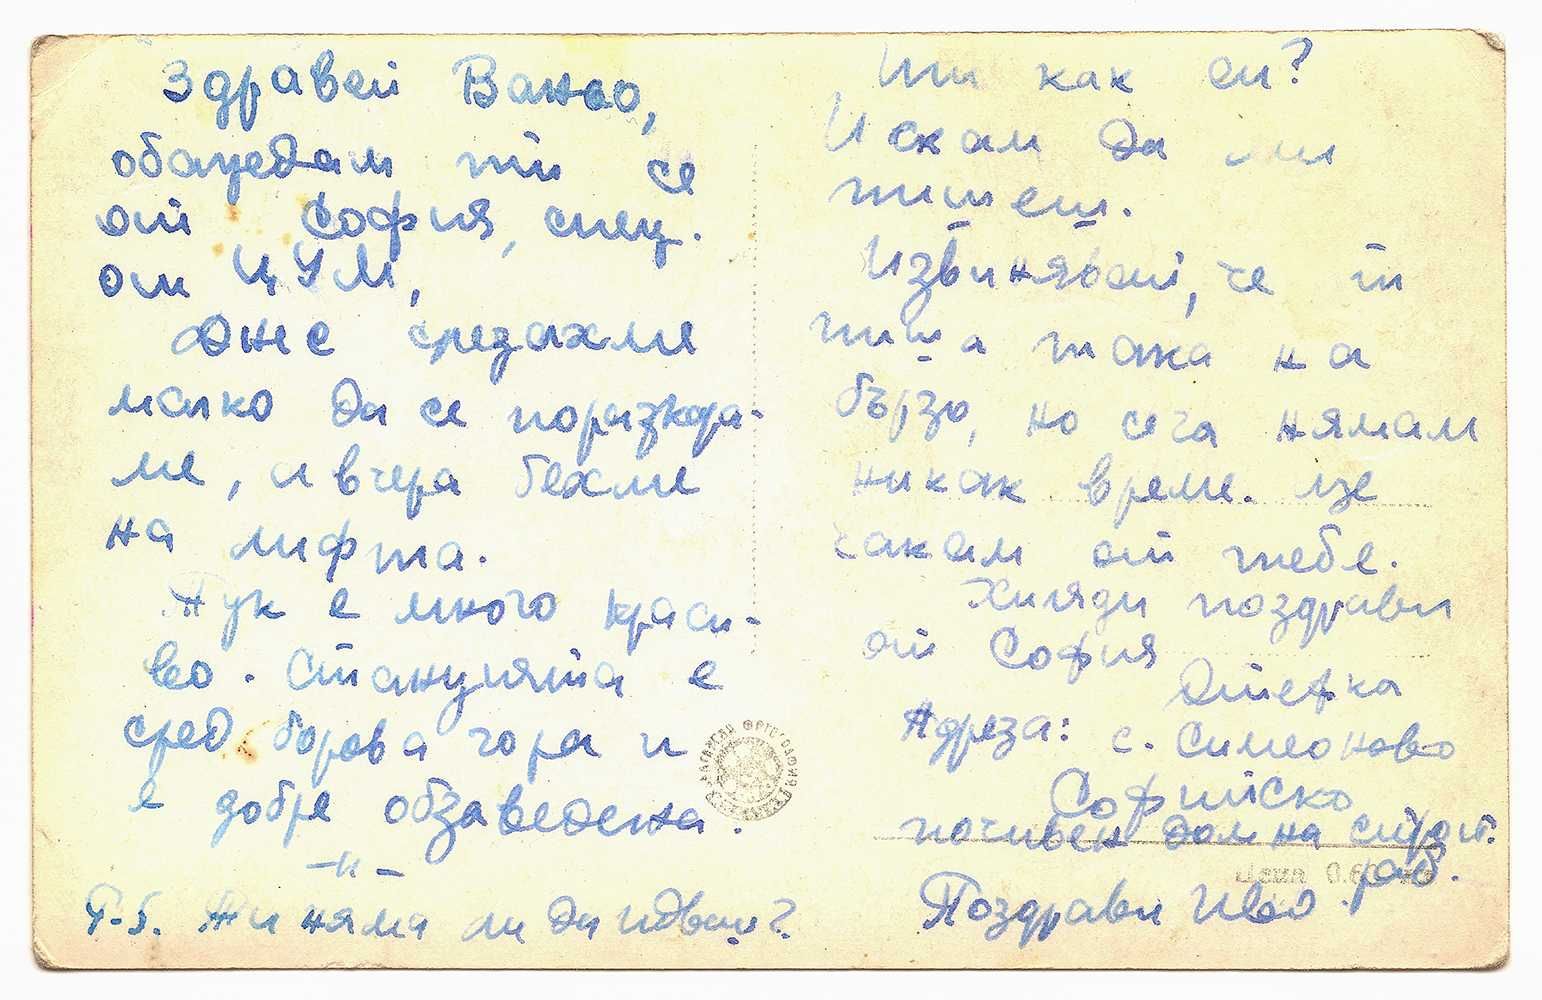 Здравей Ваньо,
обаждам ти се
от София, спец.
от ЦУМ,
Днес слезахме
малко да се поразходи-
ме, а вчера бехме
на лифта.
Тук е много краси-
во. Станцията е
сред борова гора и
е добре обзаведена.
–〃–
P-S. Ти няма ли да идваш?
Ти как си?
Искам да ми
пишеш.
Извинявай, че ти
пиша така на
бързо, но сега нямам
никак време. Ще
чакам от тебе.
Хиляди поздрави
от София
Стефка
Адреза: с. Симеоново
Софийско
почивен дом на строит.
раб.
Поздрави Иво
Цена 0.60